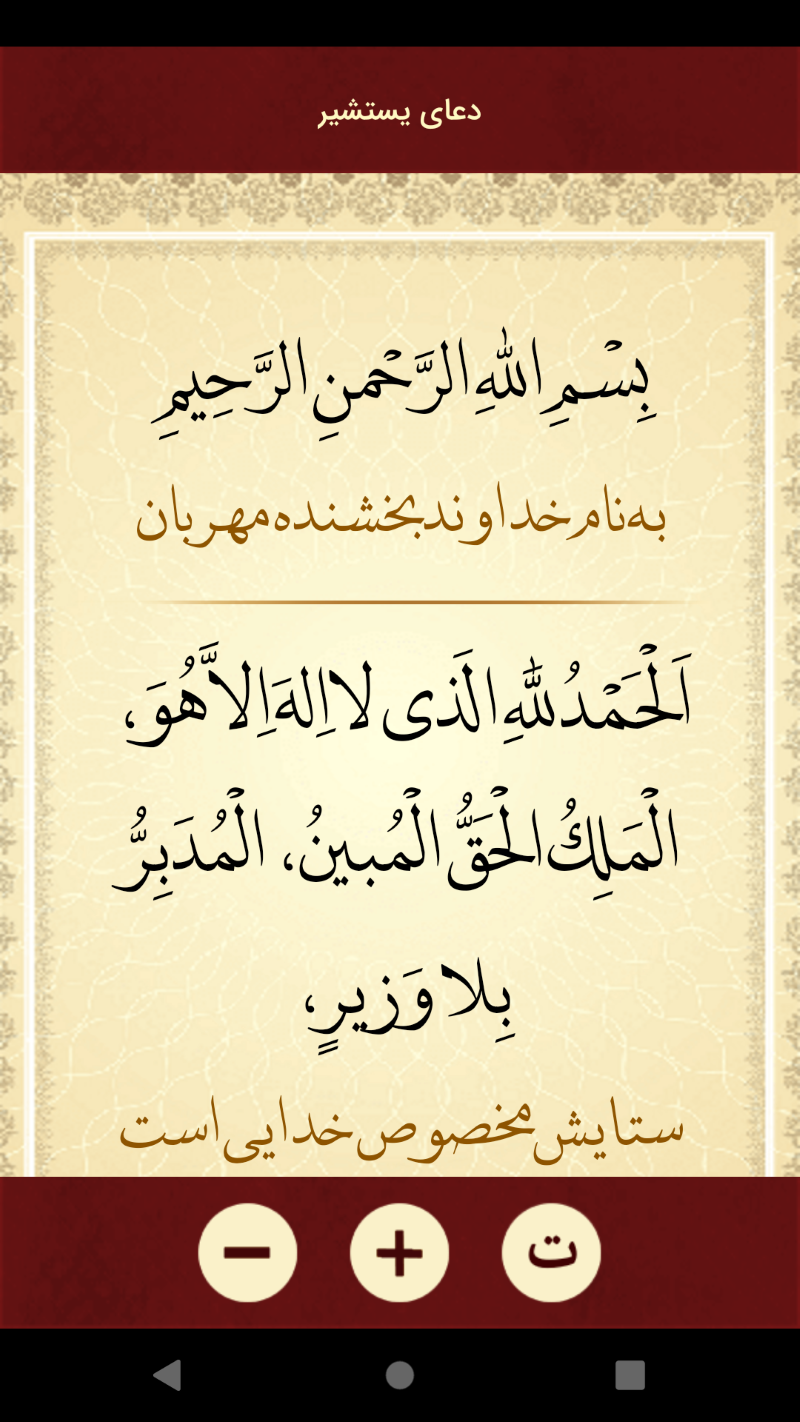 دعای یستشیر
بِسْمِ اللهِ الرَّحْمنِ الرَّحِيمِ
به نام خداوند بخشنده مهربان
اَلْحَمْدُ للهِ الَّذى لا اِلهَ اِلاَّ هُوَ،
الْمَلِكُ الْحَقُّ الْمُبينُ، الْمُدَبِرُّ
بِلا وَزيرٍ،
ستایش مخصوص خدایی است
− + ت